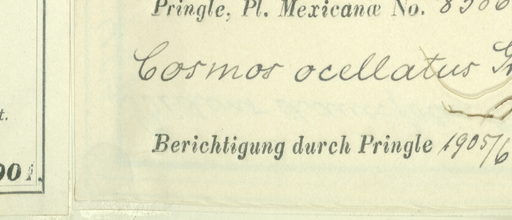 Pringle, Pl. Mexicanæ No.
Cosmos ocellatus
t.
Berichtigung durch Pringle 1905/6